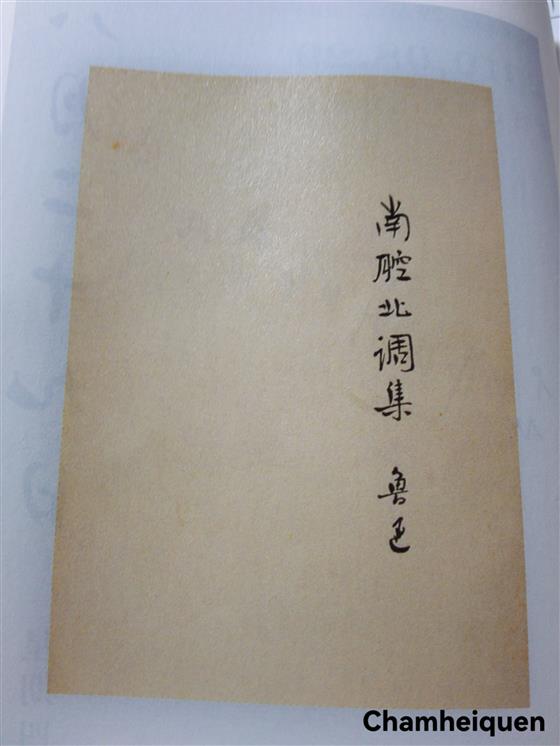 南腔北调集 鲁迅
Chamheiquen